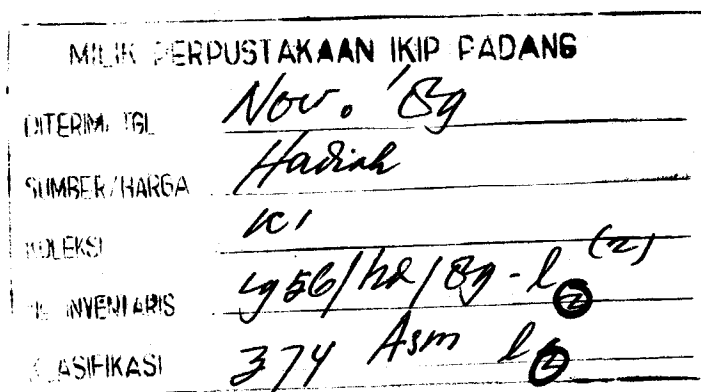 MILIK PERPUSTAKAAN IKIP PADANG
DITERIMA TGL Nov. '89
SUMBER/HARGA Hadiah
KOLEKSI KI
NO. INVENTARIS 1956/hd/89-l2 (2)
KLASIFIKASI 374 Asm l2